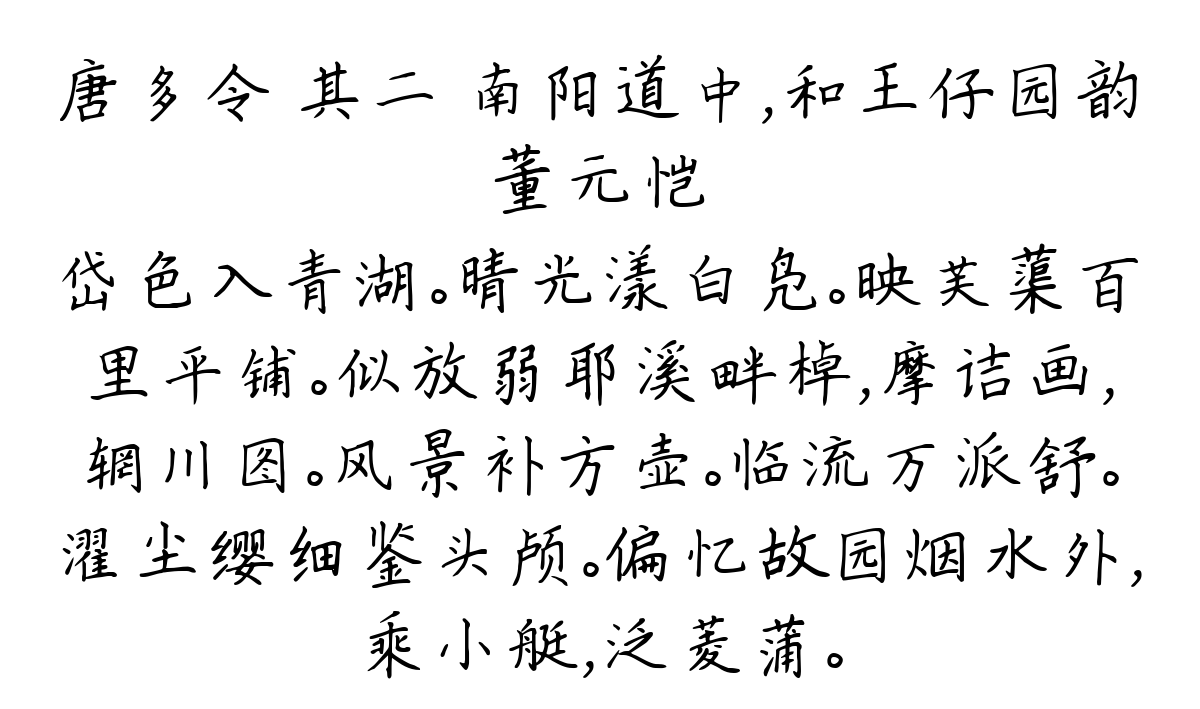 唐多令 其二 南阳道中,和王仔园韵
董元恺
岱色入青湖。晴光漾白凫。映芙蕖百
里平铺。似放弱耶溪畔棹,摩诘画,
辋川图。风景补方壶。临流万派舒。
濯尘缨细鉴头颅。偏忆故园烟水外,
乘小艇,泛菱蒲。